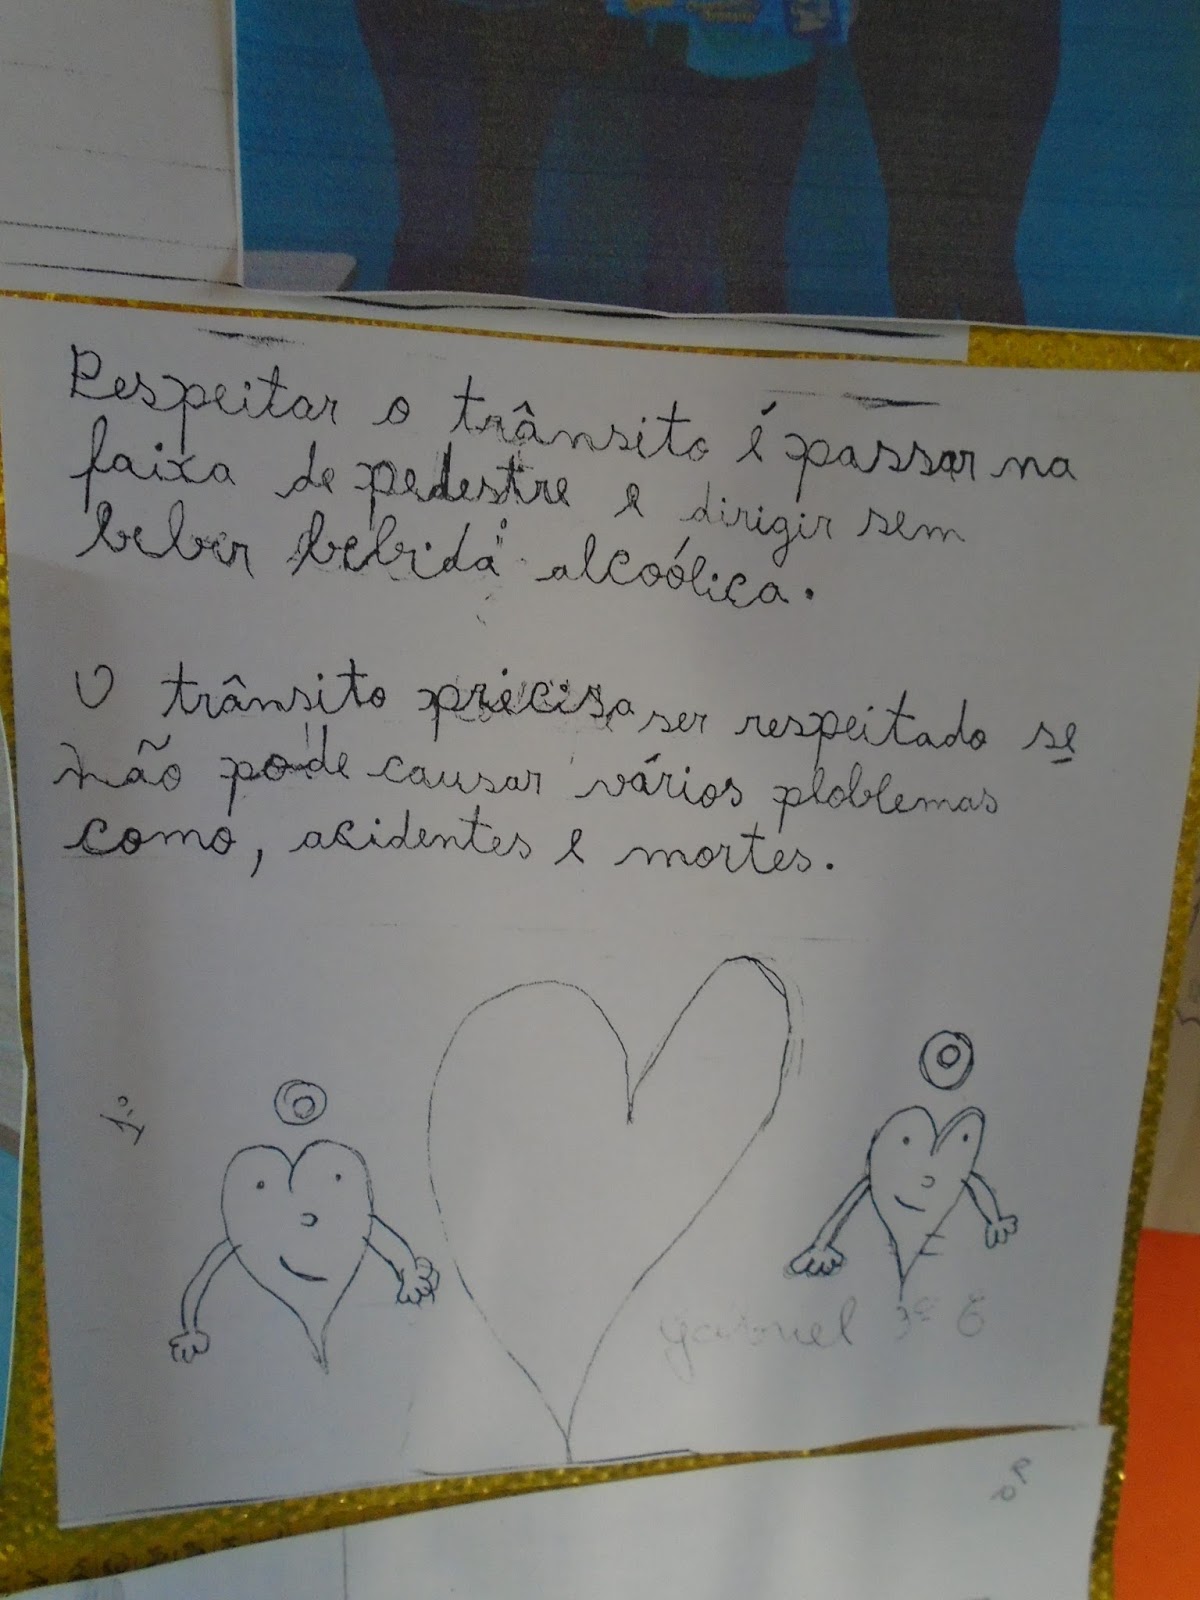 Respeitar o trânsito é passar na
faixa de pedestre e dirigir sem
beber bebida alcoólica.
O trânsito precisa ser respeitado se
não pode causar vários ploblemas
como, acidentes e mortes.
Gabriel 3º